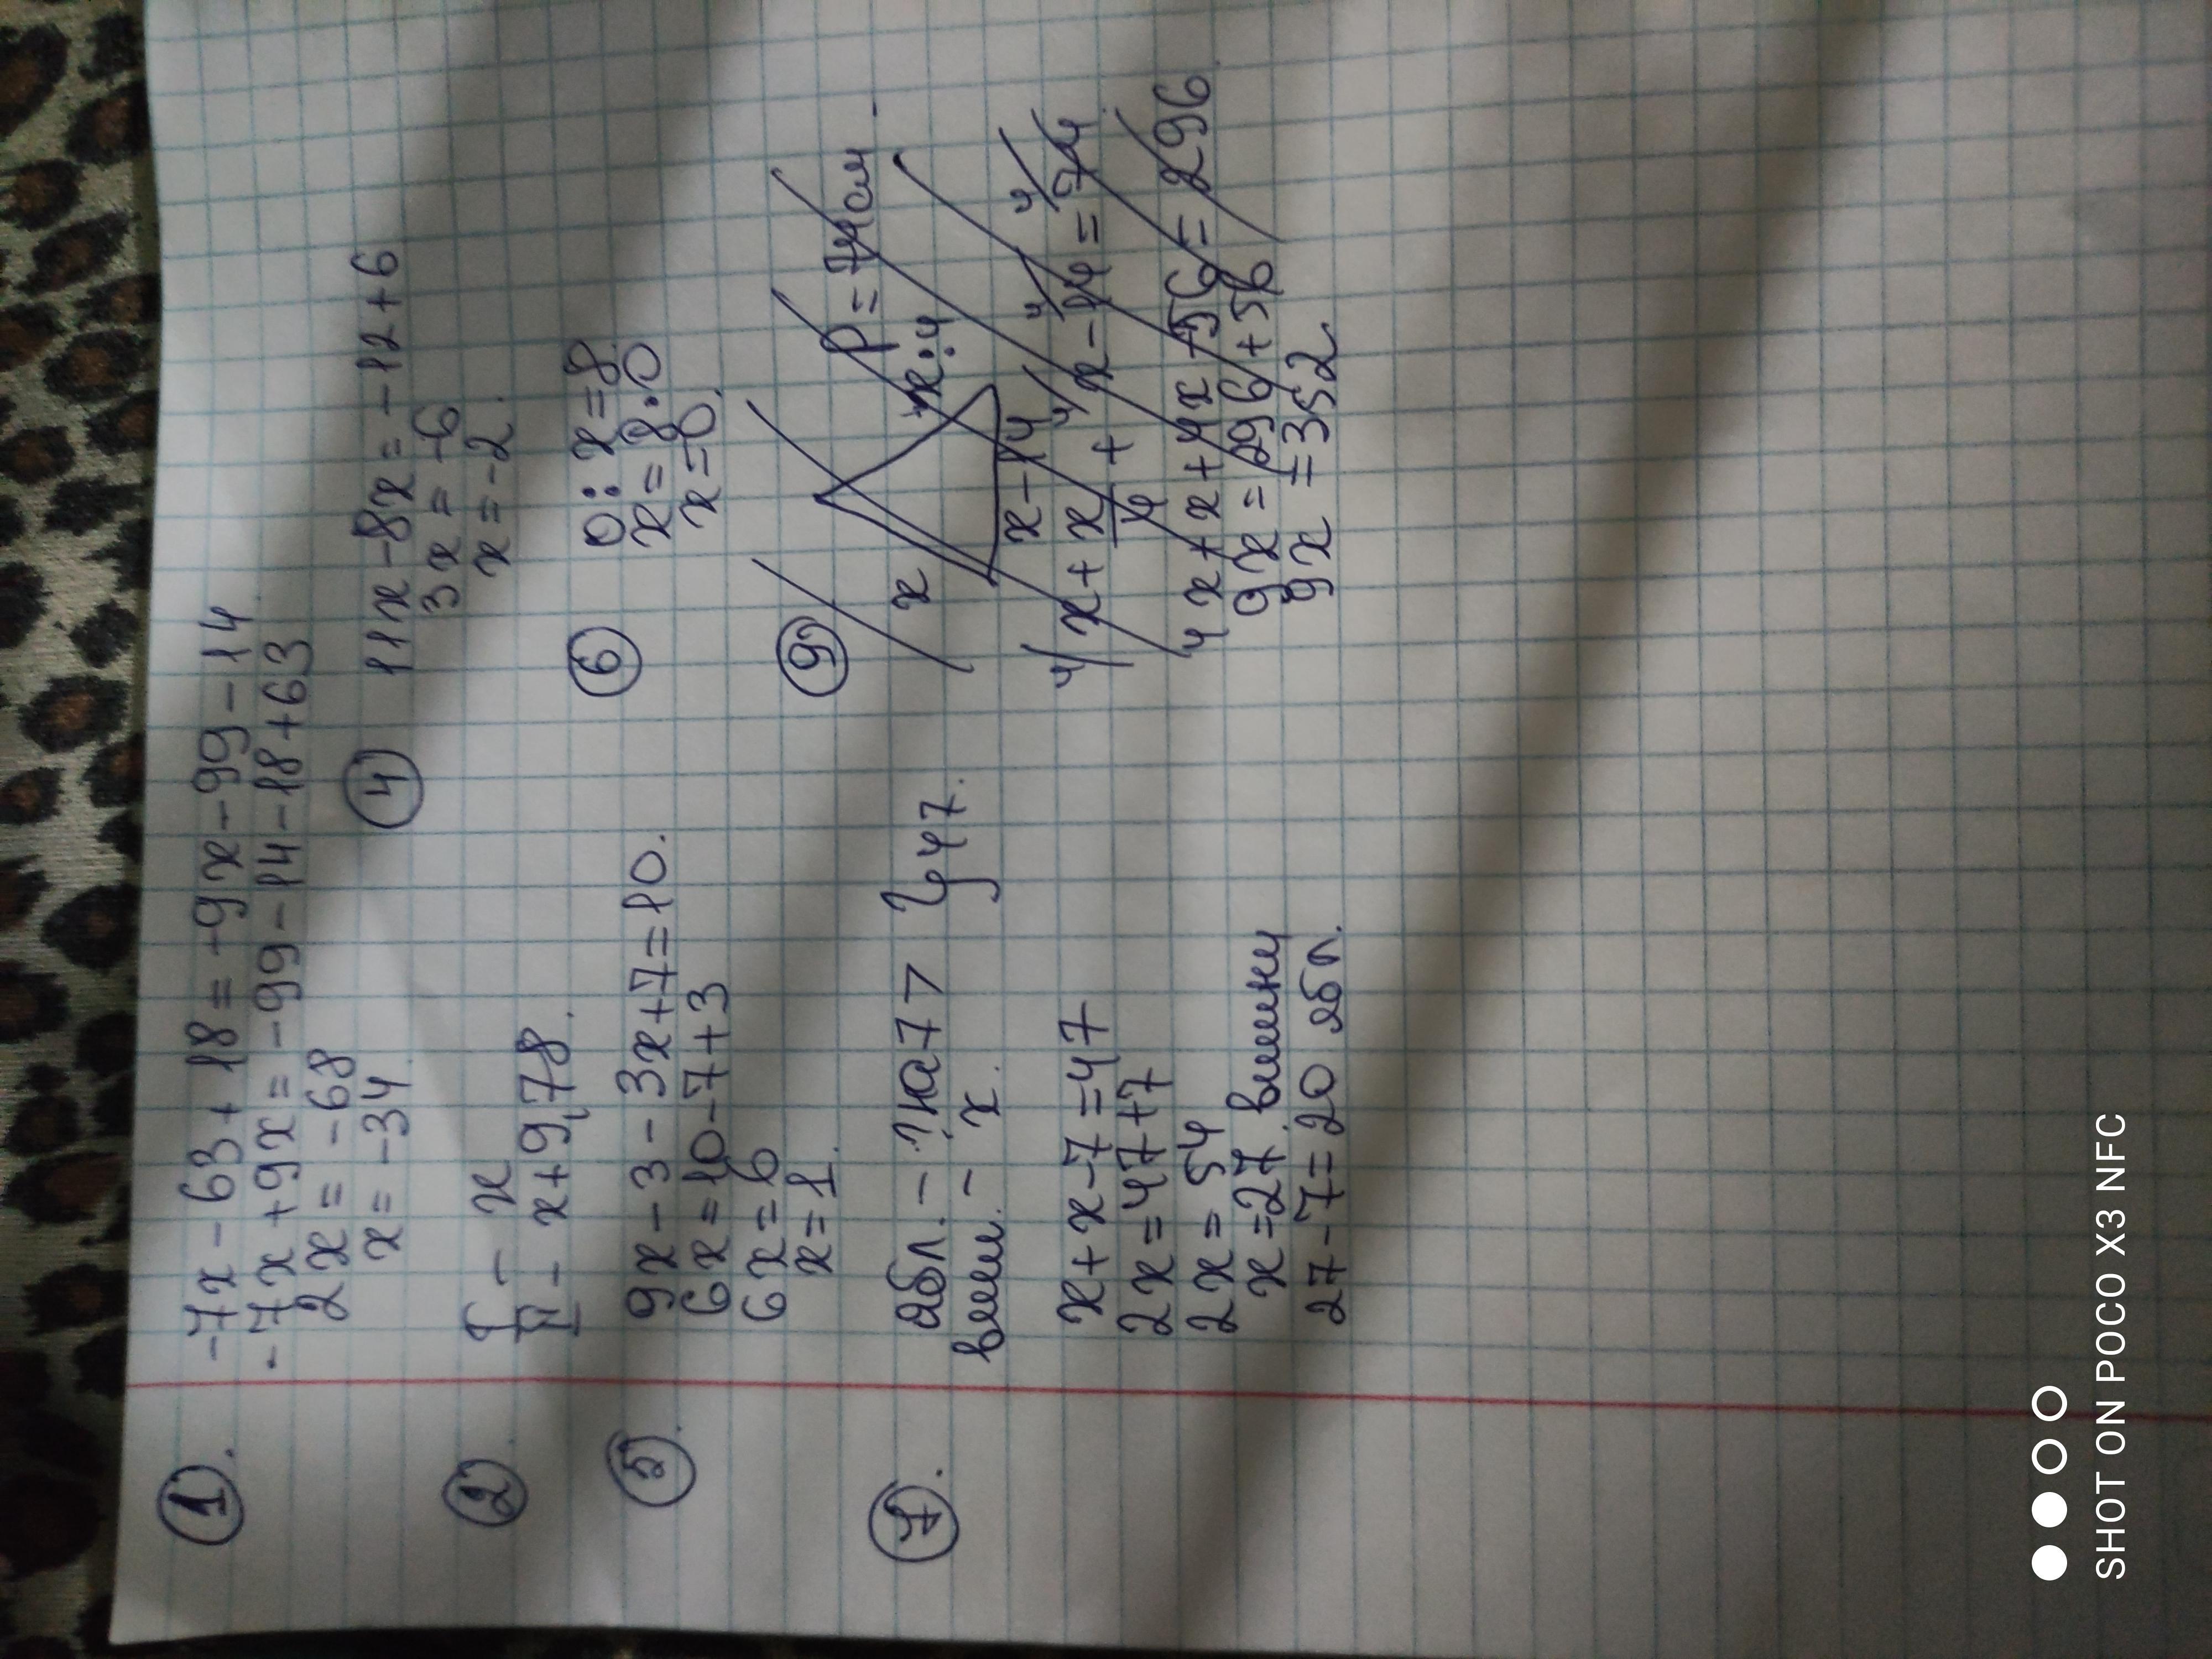 1.
-7x-63+18=-9x-99-14
-7x+9x=-99-14-18+63
2x=-68
x=-34.
2.
I - x
II - x+9,78.
4
11x-8x=-12+6
3x=-6
x=-2.
5.
9x-3-3x+7=10.
6x=10-7+3
6x=6
x=1.
6
0:x=8.
x=8·0
x=0.
7.
ябл. - ? на 7 >
виш. - x.
} 47.
x+x-7=47
2x=47+7
2x=54
x=27. вишни
27-7=20 ябл.
9
P=74см
x
x:4
x-14
4x+x+4x-56=296
9x=296+56
9x=352
SHOT ON POCO X3 NFC